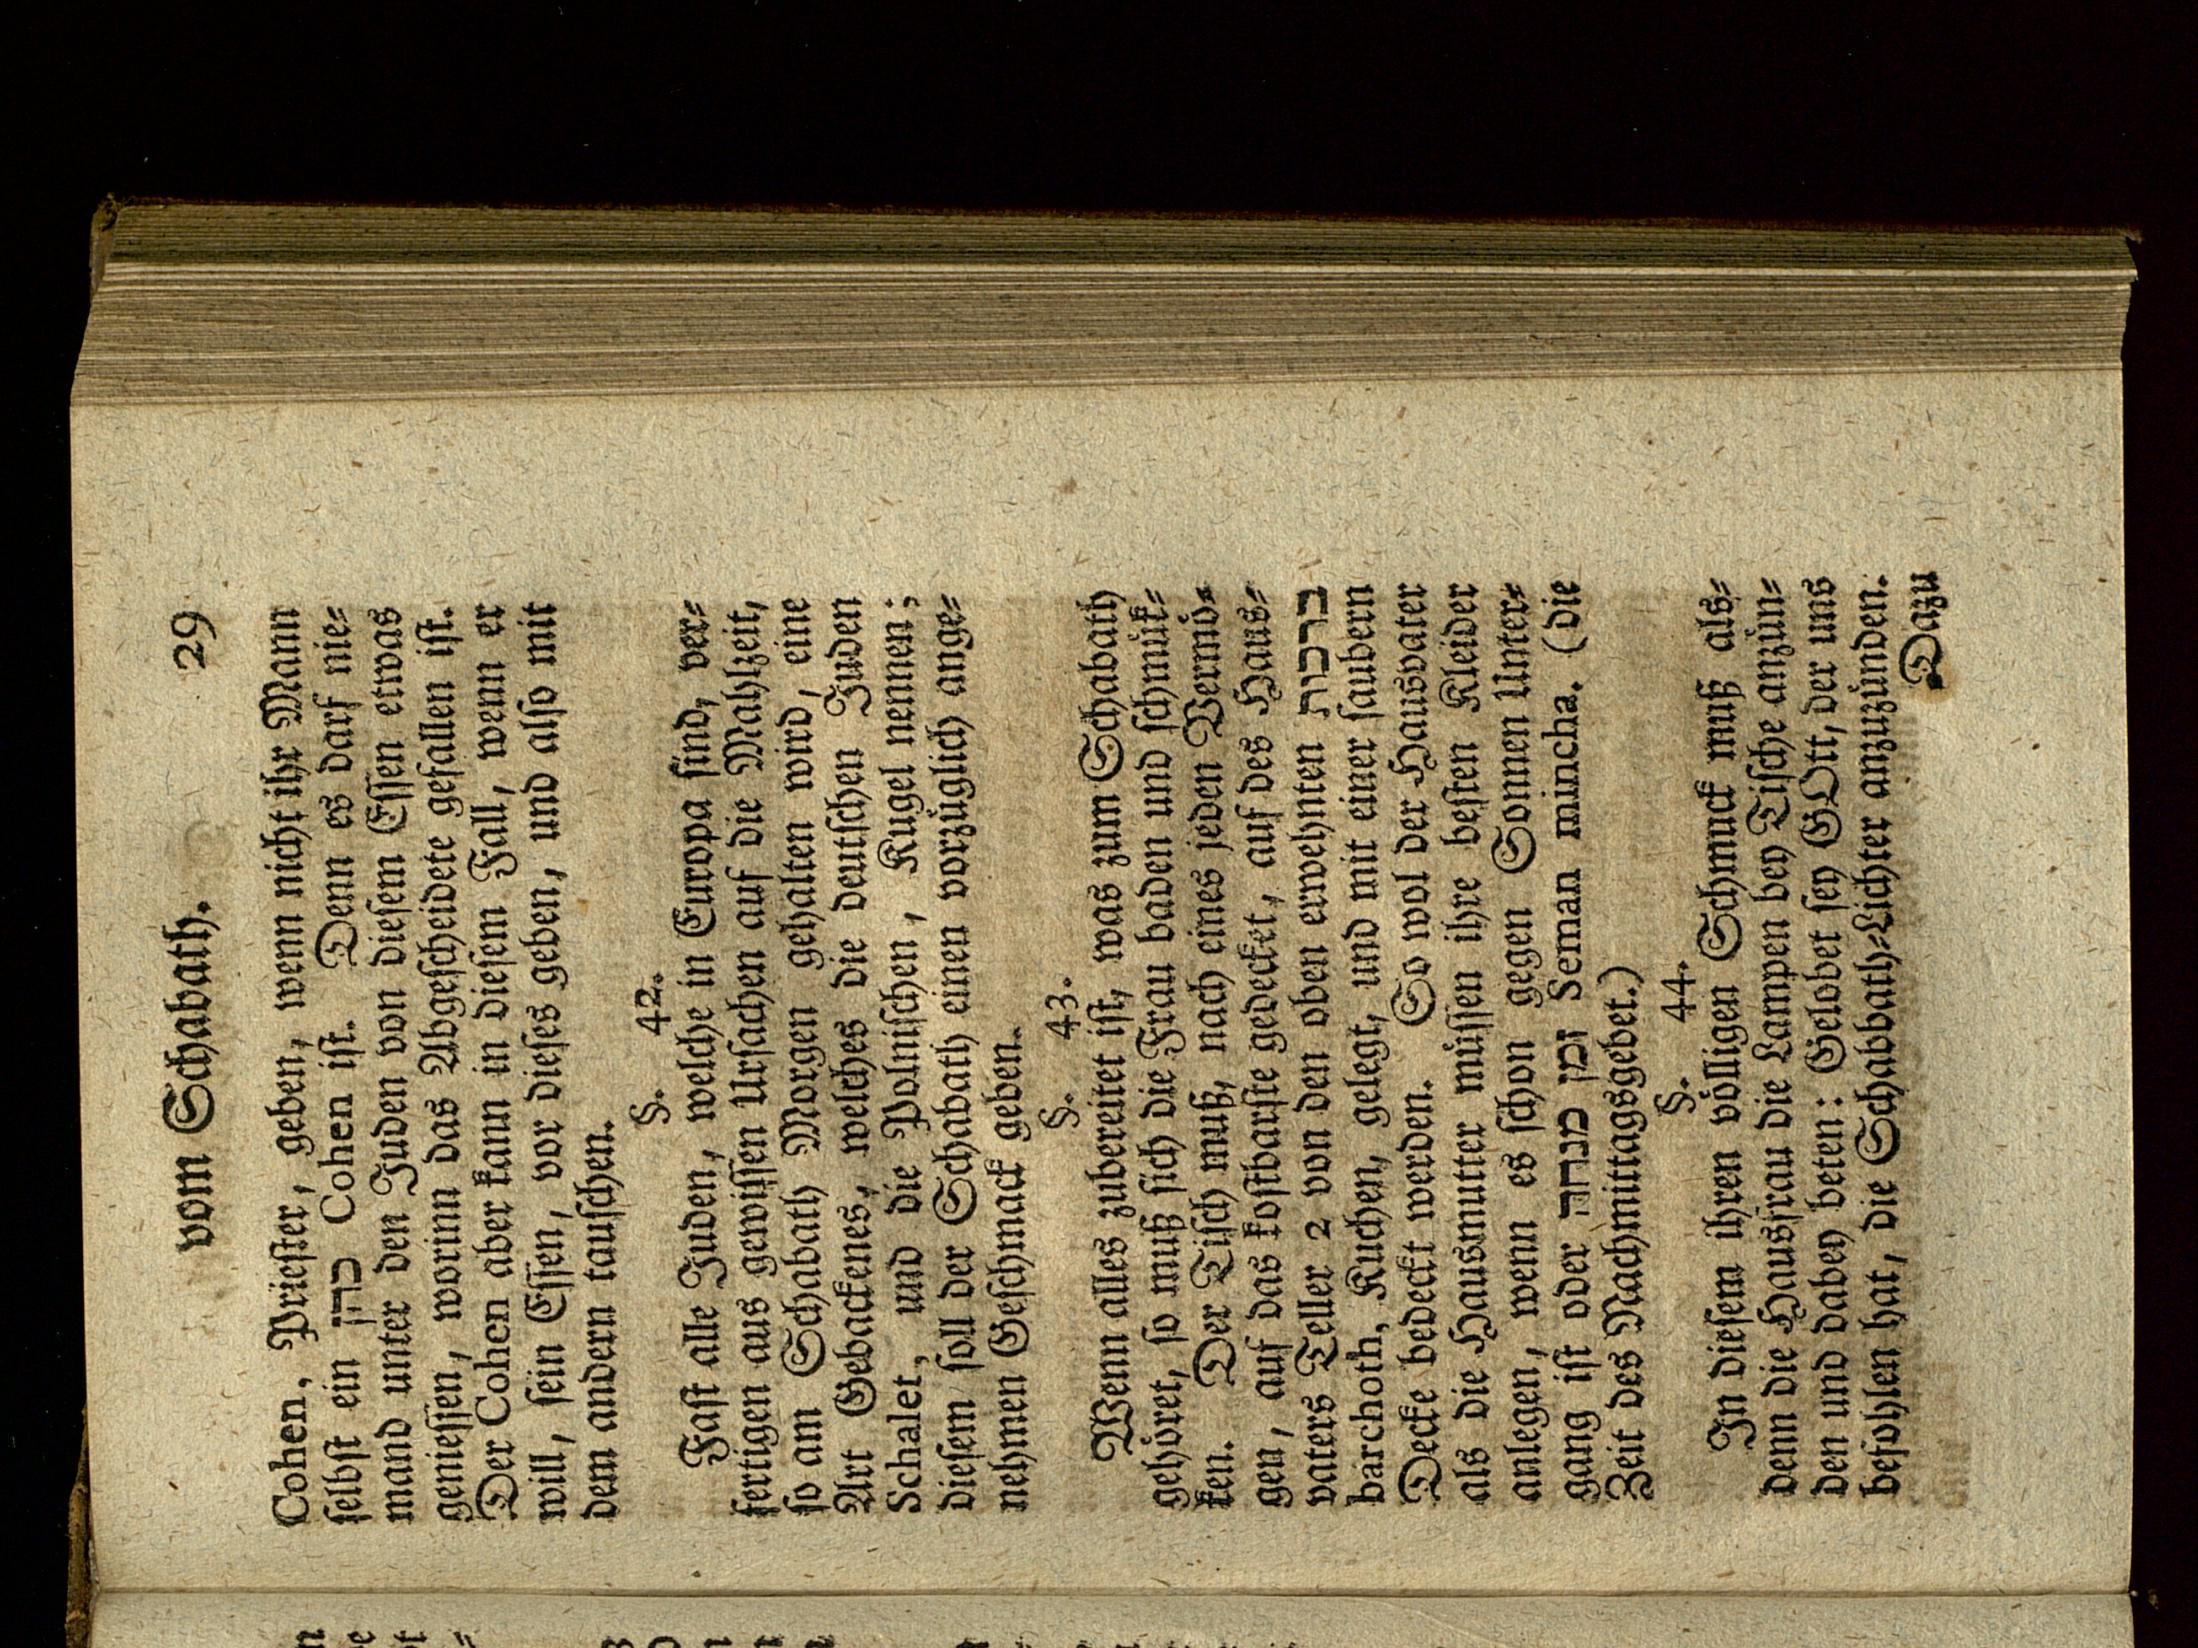 vom Schabath. 29
Cohen, Priester, geben, wenn nicht ihr Mann
selbst ein כהן Cohen ist. Denn es darf nie=
mand unter den Juden von diesem Essen etwas
geniessen, worinn das Abgescheidete gefallen ist.
Der Cohen aber kann in diesem Fall, wenn er
will, sein Essen, vor dieses geben, und also mit
dem andern tauschen.
§. 42.
Fast alle Juden, welche in Europa sind, ver=
fertigen aus gewissen Ursachen auf die Mahlzeit,
so am Schabath Morgen gehalten wird, eine
Art Gebackenes, welches die deutschen Juden
Schalet, und die Polnischen, Kugel nennen;
diesem soll der Schabath einen vorzüglich ange=
nehmen Geschmack geben.
§. 43.
Wenn alles zubereitet ist, was zum Schabath
gehöret, so muß sich die Frau baden und schmük=
ken. Der Tisch muß, nach eines jeden Vermö=
gen, auf das kostbarste gedecket, auf des Haus=
vaters Teller 2 von den oben erwehnten ברכות
barchoth, Kuchen, gelegt, und mit einer saubern
Decke bedeckt werden. So wol der Hausvater
als die Hausmutter müssen ihre besten Kleider
anlegen, wenn es schon gegen Sonnen Unter=
gang ist oder זמן מנחה Seman mincha. (die
Zeit des Nachmittagsgebet.)
§. 44.
In diesem ihren völligen Schmuck muß als=
denn die Hausfrau die Lampen bey Tische anzün=
den und dabey beten: Gelobet sey GOtt, der uns
befohlen hat, die Schabbath=Lichter anzuzünden.
Dazu